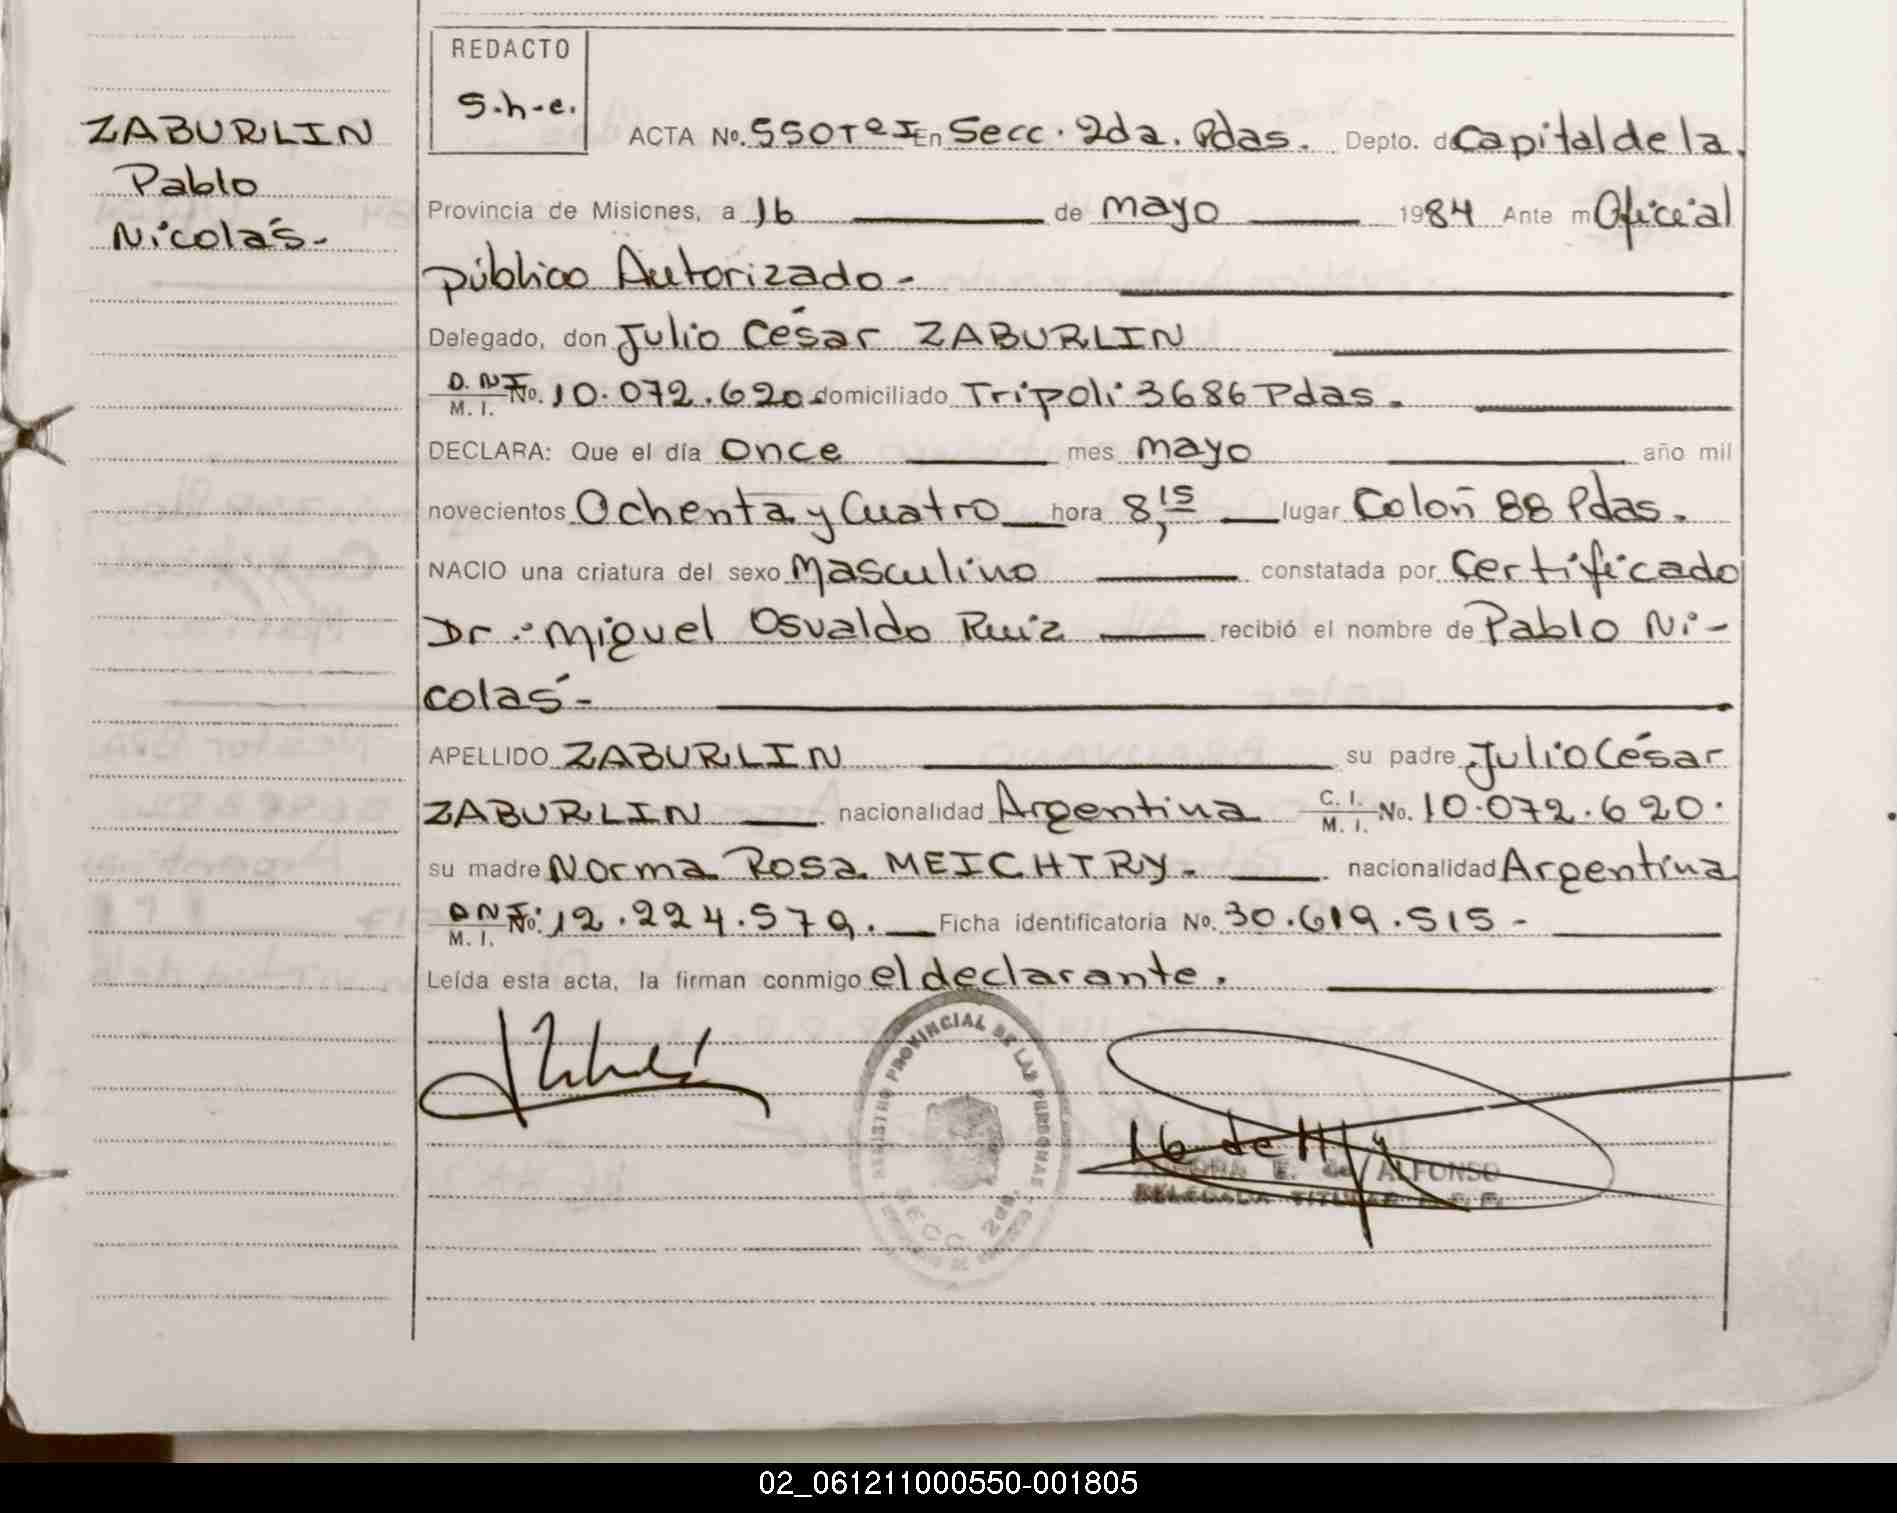 REDACTO
S.h-e.
ZABURLIN
Pablo
Nicolás-
ACTA No. 550Tº I En Secc. 2da. Pdas. Depto. de Capital de la
Provincia de Misiones, a 16 de mayo 1984 Ante mí Oficial
público Autorizado-
Delegado, don Julio César ZABURLIN
D.N.I. M. I. No. 10.072.620 domiciliado Tripoli 3686 Pdas.
DECLARA: Que el día Once mes mayo año mil
novecientos Ochenta y Cuatro hora 8,15 lugar Colón 88 Pdas.
NACIO una criatura del sexo Masculino constatada por Certificado
Dr. Miguel Osvaldo Ruiz recibió el nombre de Pablo Ni-
colás-
APELLIDO ZABURLIN su padre Julio César
ZABURLIN nacionalidad Argentina C. I. M. I. No. 10.072.620.
su madre Norma Rosa MEICHTRY. nacionalidad Argentina
D.N.I. M. I. No. 12.224.579. Ficha identificatoria No. 30.619.515-
Leída esta acta, la firman conmigo el declarante.
REGISTRO PROVINCIAL DE LAS PERSONAS
SECC. 2da.
E. de ALFONSO
DELEGADA TITULAR
02_061211000550-001805